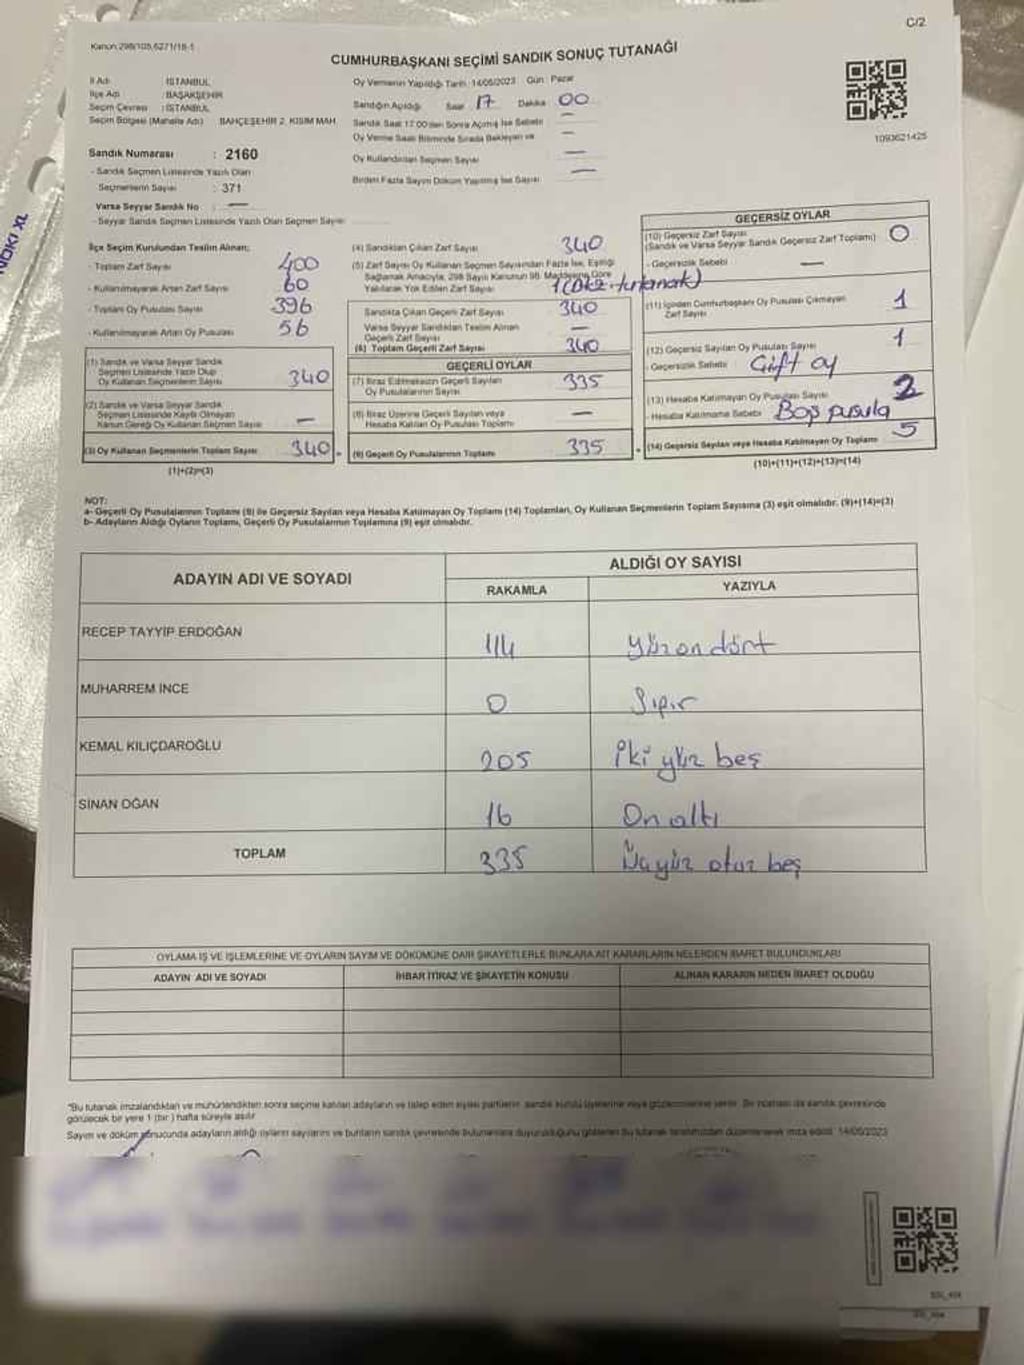 C/2
Kanon 298/105,6271/18-1
CUMHURBAŞKANI SEÇİMİ SANDIK SONUÇ TUTANAĞI
İl Adı : İSTANBUL
İlçe Adı : BAŞAKŞEHİR
Seçim Çevresi : İSTANBUL
Seçim Bölgesi (Mahalle Adı) BAHÇEŞEHİR 2. KISIM MAH.
Oy Vermenin Yapıldığı Tarih :14/05/2023 Gün : Pazar
Sandığın Açıldığı Saat 17 Dakika 00
Sandık Saat 17:00'den Sonra Açılmış İse Sebebi : —
Oy Verme Saati Bitiminde Sırada Bekleyen ve —
Oy Kullandırılan Seçmen Sayısı —
Birden Fazla Sayım Döküm Yapılmış İse Sayısı —
1093621425
Sandık Numarası : 2160
- Sandık Seçmen Listesinde Yazılı Olan
Seçmenlerin Sayısı : 371
Varsa Seyyar Sandık No : —
- Seyyar Sandık Seçmen Listesinde Yazılı Olan Seçmen Sayısı:
İlçe Seçim Kurulundan Teslim Alınan;
- Toplam Zarf Sayısı 400
- Kullanılmayarak Artan Zarf Sayısı 60
- Toplam Oy Pusulası Sayısı 396
- Kullanılmayarak Artan Oy Pusulası 56
(1) Sandık ve Varsa Seyyar Sandık
Seçmen Listesinde Yazılı Olup
Oy Kullanan Seçmenlerin Sayısı 340
(2) Sandık ve Varsa Seyyar Sandık
Seçmen Listesinde Kayıtlı Olmayan
Kanun Gereği Oy Kullanan Seçmen Sayısı —
(3) Oy Kullanan Seçmenlerin Toplam Sayısı 340
(1)+(2)=(3)
(4) Sandıktan Çıkan Zarf Sayısı 340
(5) Zarf Sayısı Oy Kullanan Seçmen Sayısından Fazla İse, Eşitliği
Sağlamak Amacıyla, 298 Sayılı Kanunun 98. Maddesine Göre
Yakılarak Yok Edilen Zarf Sayısı
Sandıkta Çıkan Geçerli Zarf Sayısı 340
Varsa Seyyar Sandıktan Teslim Alınan
Geçerli Zarf Sayısı —
(6) Toplam Geçerli Zarf Sayısı 340
GEÇERLİ OYLAR
(7) İtiraz Edilmeksizin Geçerli Sayılan
Oy Pusulalarının Sayısı 335
(8) İtiraz Üzerine Geçerli Sayılan veya
Hesaba Katılan Oy Pusulası Toplamı —
(9) Geçerli Oy Pusulalarının Toplamı 335
GEÇERSİZ OYLAR
(10) Geçersiz Zarf Sayısı
(Sandık ve Varsa Seyyar Sandık Geçersiz Zarf Toplamı) 0
- Geçersizlik Sebebi —
(11) İçinden Cumhurbaşkanı Oy Pusulası Çıkmayan
Zarf Sayısı 1
(12) Geçersiz Sayılan Oy Pusulası Sayısı 1
- Geçersizlik Sebebi : Çift oy
(13) Hesaba Katılmayan Oy Pusulası Sayısı 2
- Hesaba Katılmama Sebebi Boş pusula
(14) Geçersiz Sayılan veya Hesaba Katılmayan Oy Toplamı 5
(10)+(11)+(12)+(13)=(14)
NOT:
a- Geçerli Oy Pusulalarının Toplamı (9) ile Geçersiz Sayılan veya Hesaba Katılmayan Oy Toplamı (14) Toplamları, Oy Kullanan Seçmenlerin Toplam Sayısına (3) eşit olmalıdır. (9)+(14)=(3)
b- Adayların Aldığı Oyların Toplamı, Geçerli Oy Pusulalarının Toplamına (9) eşit olmalıdır.
ADAYIN ADI VE SOYADI ALDIĞI OY SAYISI
RAKAMLA YAZIYLA
RECEP TAYYİP ERDOĞAN 114 Yüzondört
MUHARREM İNCE 0 Sıfır
KEMAL KILIÇDAROĞLU 205 İki yüz beş
SİNAN OĞAN 16 On altı
TOPLAM 335 Üçyüz otuz beş
OYLAMA İŞ VE İŞLEMLERİNE VE OYLARIN SAYIM VE DÖKÜMÜNE DAİR ŞİKAYETLERLE BUNLARA AİT KARARLARIN NELERDEN İBARET BULUNDUKLARI
ADAYIN ADI VE SOYADI İHBAR İTİRAZ VE ŞİKAYETİN KONUSU ALINAN KARARIN NEDEN İBARET OLDUĞU
"Bu tutanak imzalandıktan ve mühürlendikten sonra seçime katılan adayların ve talep eden siyasi partilerin, sandık kurulu üyelerine veya gözlemcilerine verilir. Bir nüshası da sandık çevresinde
görülecek bir yere 1 (bir ) hafta süreyle asılır
Sayım ve döküm sonucunda adayların aldığı oyların sayılarını ve bunların sandık çevresinde bulunanlara duyurulduğunu gösteren bu tutanak tarafımızdan düzenlenerek imza edildi. 14/05/2023